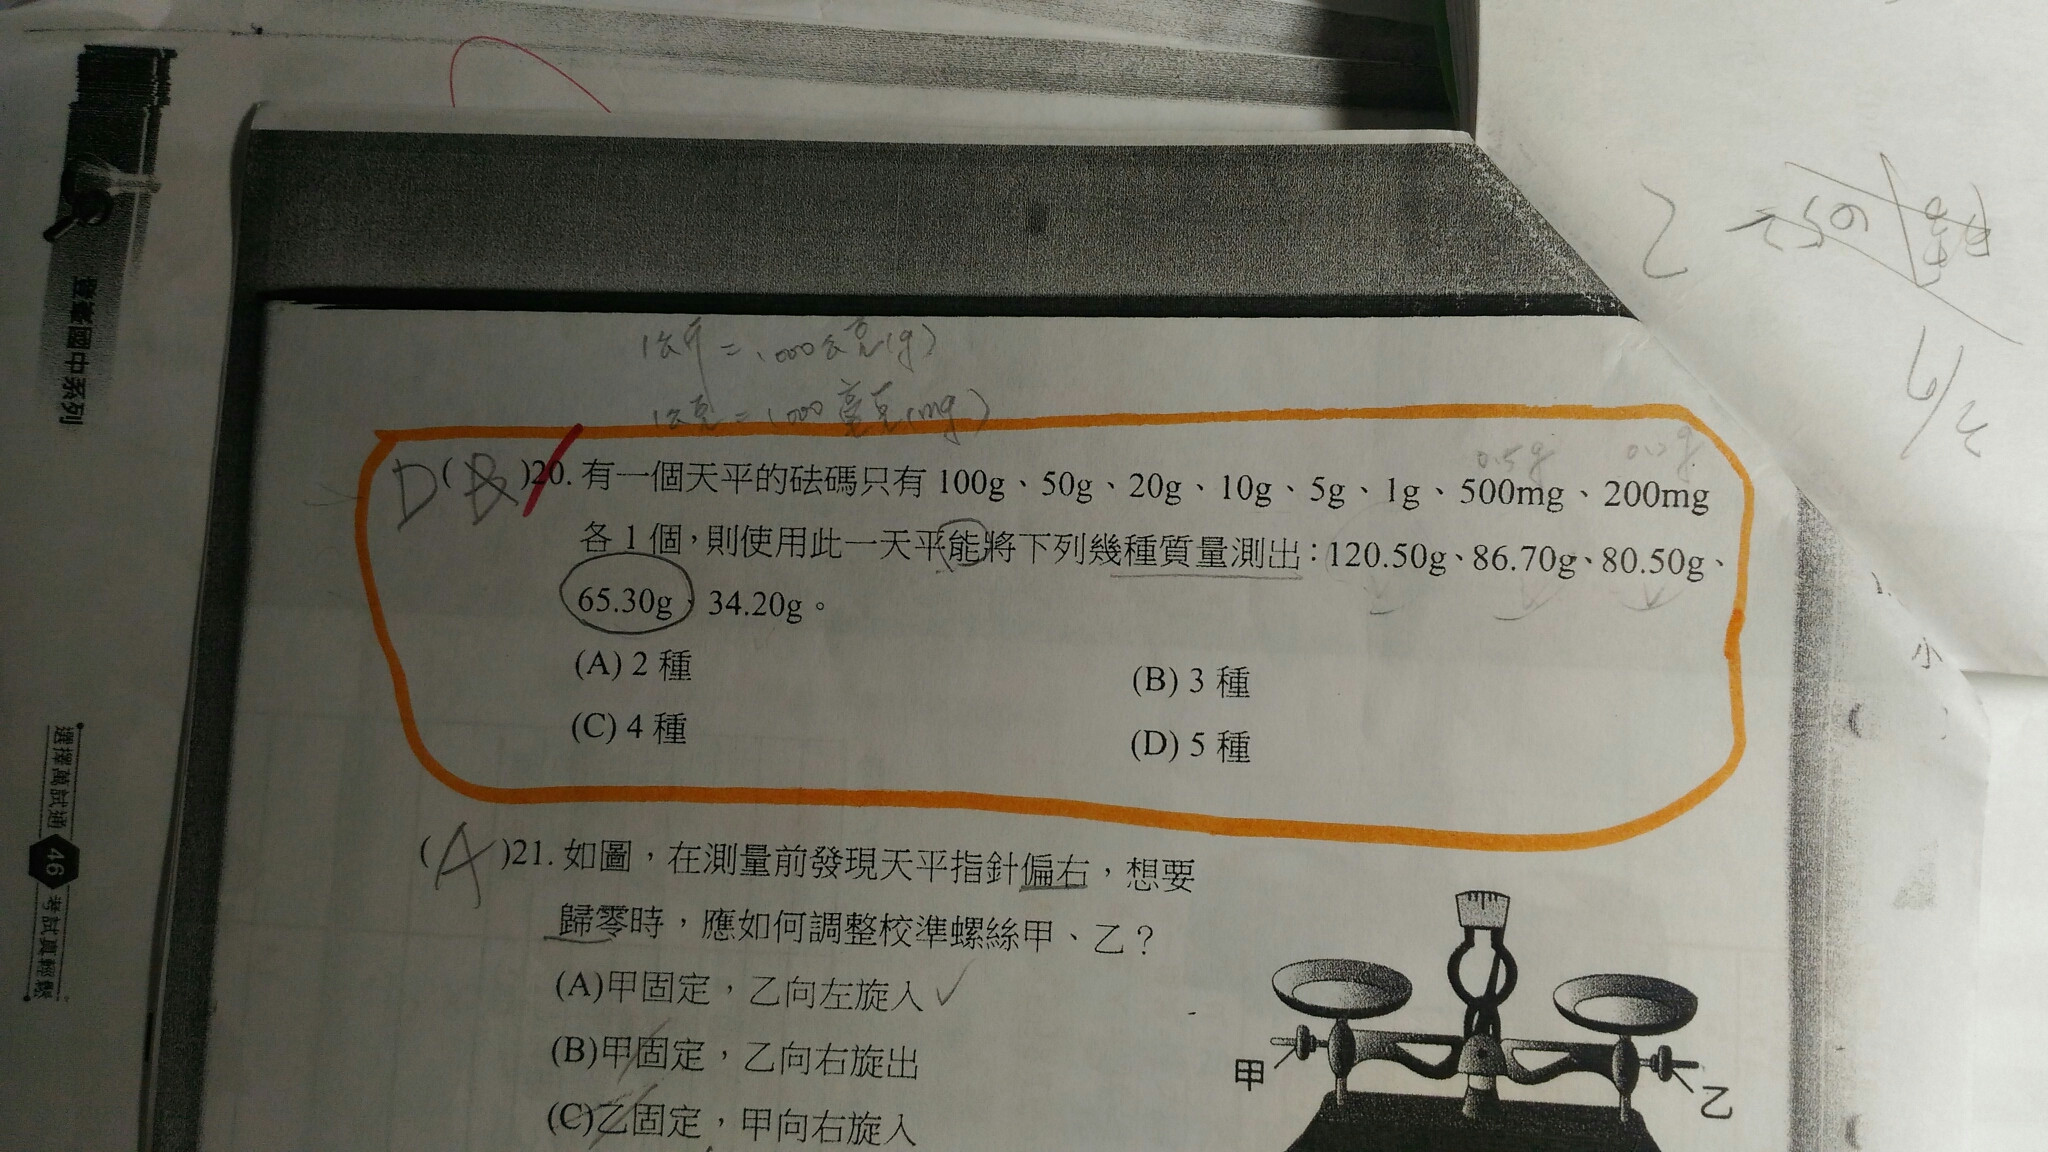 1公斤=1000公克(g)
1公克=1000毫克(mg)
0.5g 0.2g
D(B)20. 有一個天平的砝碼只有 100g、50g、20g、10g、5g、1g、500mg、200mg
各 1 個，則使用此一天平能將下列幾種質量測出：120.50g、86.70g、80.50g、
65.30g、34.20g。
(A) 2 種 (B) 3 種
(C) 4 種 (D) 5 種
(A)21. 如圖，在測量前發現天平指針偏右，想要
歸零時，應如何調整校準螺絲甲、乙？
(A)甲固定，乙向左旋入
(B)甲固定，乙向右旋出
(C)乙固定，甲向右旋入
甲
乙
國中系列
選擇萬試通 46 考試真輕鬆
乙
小